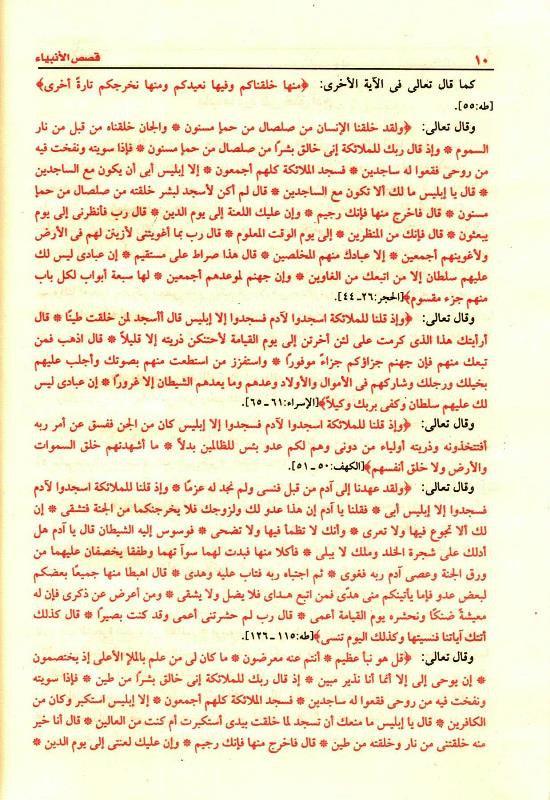 ١٠ قصص الأنبياء
كما قال تعالى فى الآية الأخرى: ﴿منها خلقناكم وفيها نعيدكم ومنها نخرجكم تارةً أخرى﴾
[طه:٥٥].
وقال تعالى: ﴿ولقد خلقنا الإنسان من صلصال من حمإ مسنون * والجان خلقناه من قبل من نار
السموم * وإذ قال ربك للملائكة إنى خالق بشرًا من صلصال من حمإ مسنون * فإذا سويته ونفخت فيه
من روحى فقعوا له ساجدين * فسجد الملائكة كلهم أجمعون * إلا إبليس أبى أن يكون مع الساجدين
* قال يا إبليس ما لك ألا تكون مع الساجدين * قال لم أكن لأسجد لبشر خلقته من صلصال من حمإ
مسنون * قال فاخرج منها فإنك رجيم * وإن عليك اللعنة إلى يوم الدين * قال رب فأنظرنى إلى يوم
يبعثون * قال فإنك من المنظرين * إلى يوم الوقت المعلوم * قال رب بما أغويتنى لأزينن لهم فى الأرض
ولأغوينهم أجمعين * إلا عبادك منهم المخلصين * قال هذا صراط على مستقيم * إن عبادى ليس لك
عليهم سلطان إلا من اتبعك من الغاوين * وإن جهنم لموعدهم أجمعين * لها سبعة أبواب لكل باب
منهم جزء مقسوم﴾[الحجر:٢٦ـ٤٤].
وقال تعالى: ﴿وإذ قلنا للملائكة اسجدوا لآدم فسجدوا إلا إبليس قال أأسجد لمن خلقت طينًا * قال
أرأيتك هذا الذى كرمت على لئن أخرتن إلى يوم القيامة لأحتنكن ذريته إلا قليلاً * قال اذهب فمن
تبعك منهم فإن جهنم جزاؤكم جزاءً موفورًا * واستفزز من استطعت منهم بصوتك وأجلب عليهم
بخيلك ورجلك وشاركهم فى الأموال والأولاد وعدهم وما يعدهم الشيطان إلا غرورًا * إن عبادى ليس
لك عليهم سلطان وكفى بربك وكيلاً﴾[الإسراء:٦١ـ٦٥].
وقال تعالى: ﴿وإذ قلنا للملائكة اسجدوا لآدم فسجدوا إلا إبليس كان من الجن ففسق عن أمر ربه
أفتتخذونه وذريته أولياء من دونى وهم لكم عدو بئس للظالمين بدلاً * ما أشهدتهم خلق السموات
والأرض ولا خلق أنفسهم﴾[الكهف:٥٠ـ٥١].
وقال تعالى: ﴿ولقد عهدنا إلى آدم من قبل فنسى ولم نجد له عزمًا * وإذ قلنا للملائكة اسجدوا لآدم
فسجدوا إلا إبليس أبى * فقلنا يا آدم إن هذا عدو لك ولزوجك فلا يخرجنكما من الجنة فتشقى * إن
لك ألا تجوع فيها ولا تعرى * وأنك لا تظمأ فيها ولا تضحى * فوسوس إليه الشيطان قال يا آدم هل
أدلك على شجرة الخلد وملك لا يبلى * فأكلا منها فبدت لهما سوآتهما وطفقا يخصفان عليهما من
ورق الجنة وعصى آدم ربه فغوى * ثم اجتباه ربه فتاب عليه وهدى * قال اهبطا منها جميعًا بعضكم
لبعض عدو فإما يأتينكم منى هدًى فمن اتبع هداى فلا يضل ولا يشقى * ومن أعرض عن ذكرى فإن له
معيشةً ضنكًا ونحشره يوم القيامة أعمى * قال رب لم حشرتنى أعمى وقد كنت بصيرًا * قال كذلك
أتتك آياتنا فنسيتها وكذلك اليوم تنسى﴾[طه:١١٥ـ١٢٦].
وقال تعالى: ﴿قل هو نبأ عظيم * أنتم عنه معرضون * ما كان لى من علم بالملإ الأعلى إذ يختصمون
* إن يوحى إلى إلا أنما أنا نذير مبين * إذ قال ربك للملائكة إنى خالق بشرًا من طين * فإذا سويته
ونفخت فيه من روحى فقعوا له ساجدين * فسجد الملائكة كلهم أجمعون * إلا إبليس استكبر وكان من
الكافرين * قال يا إبليس ما منعك أن تسجد لما خلقت بيدى أستكبرت أم كنت من العالين * قال أنا خير
منه خلقتنى من نار وخلقته من طين * قال فاخرج منها فإنك رجيم * وإن عليك لعنتى إلى يوم الدين *